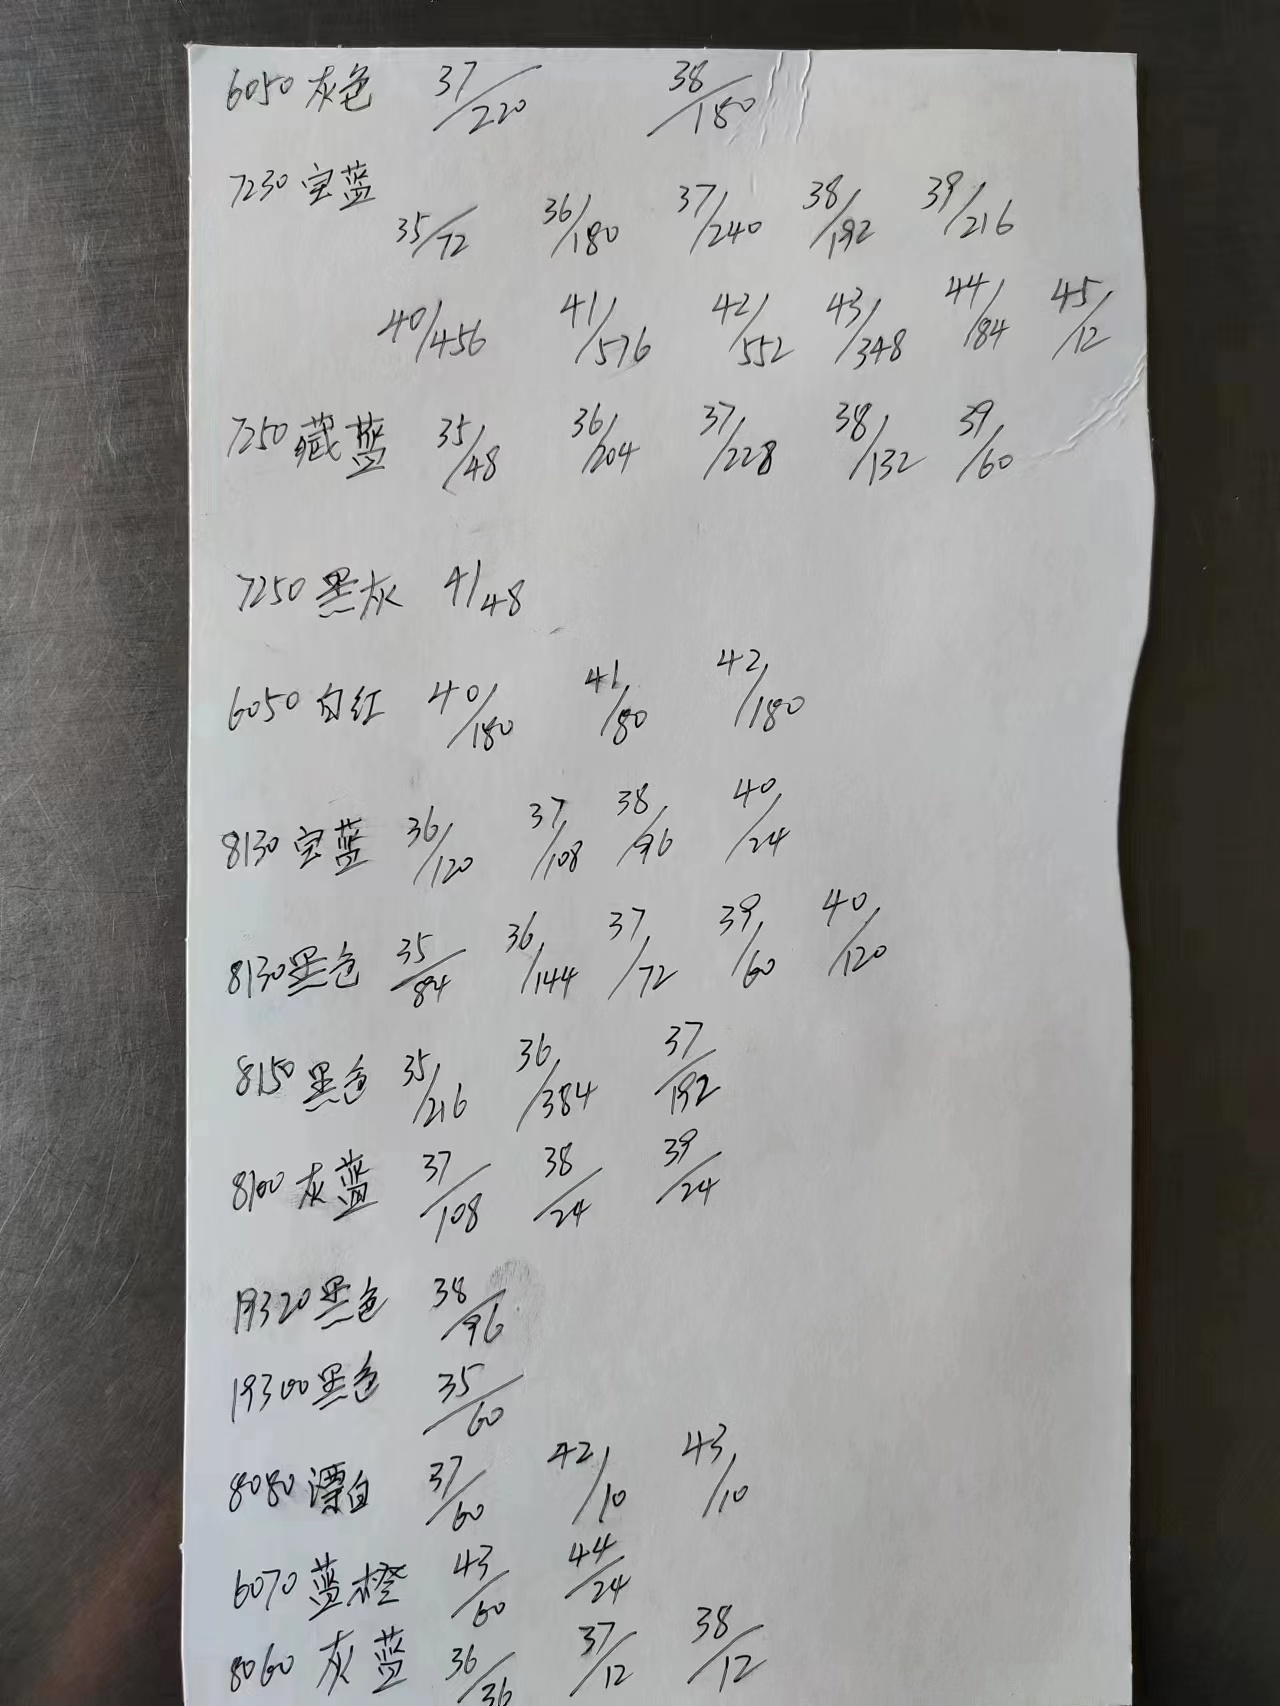 6050 灰色 37/220 38/180
7230 宝蓝
35/72 36/180 37/240 38/192 39/216
40/456 41/576 42/552 43/348 44/84 45/12
7250 藏蓝 35/48 36/204 37/228 38/132 39/60
7250 黑灰 41/48
6050 白红 40/180 41/80 42/180
8130 宝蓝 36/120 37/108 38/96 40/24
8130 黑色 35/84 36/144 37/72 39/60 40/120
8150 黑色 35/216 36/384 37/192
8100 灰蓝 37/108 38/24 39/24
19320 黑色 38/96
19300 黑色 35/60
8080 漂白 37/60 42/10 43/10
6070 蓝橙 43/60 44/24
8060 灰蓝 36/36 37/12 38/12